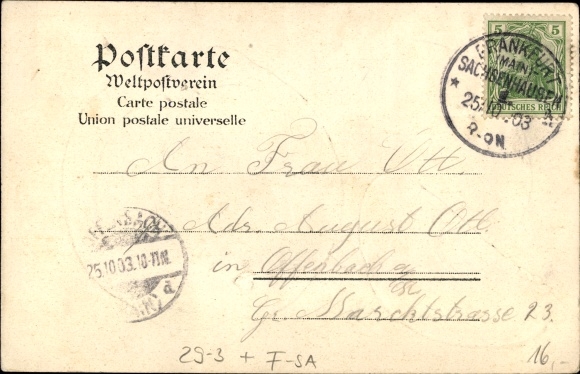 Postkarte
Weltpostverein
Carte postale
Union postale universelle
5 5
DEUTSCHES REICH
FRANKFURT
(MAIN)
SACHSENHAUSEN
* 25.10.03
8-9N
An Frau Ott.
Adr. August Ott
in Offenbach a/
M
Gr. Marchtstrasse 23.
25.10.03.10-11N.
29-3 + F-SA
16,-